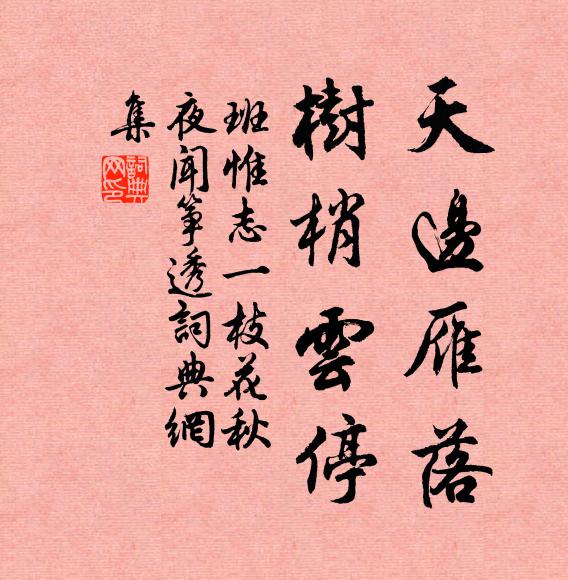 天邊雁落
樹梢雲停
班惟志一枝花秋
夜聞筝透詞典網
集
詞典
网印